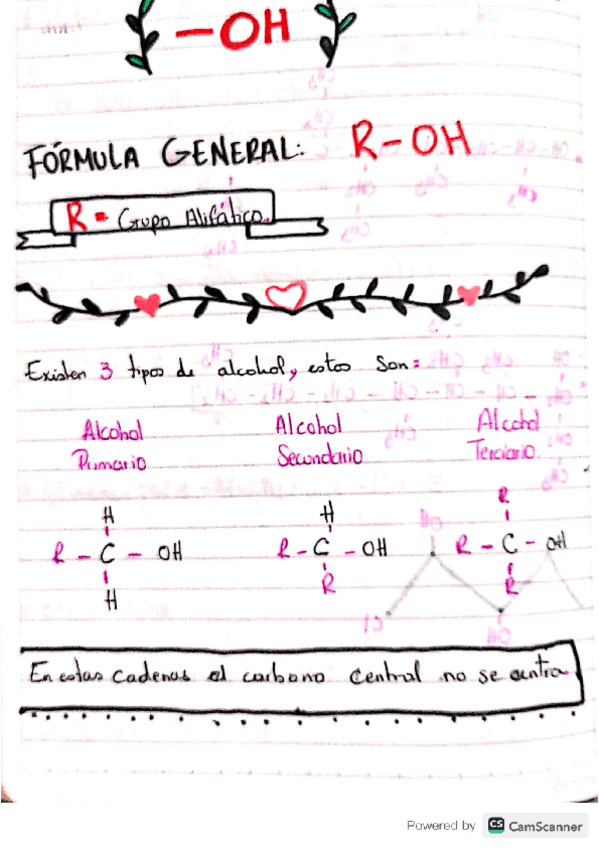 -OH
FÓRMULA GENERAL: R-OH
R = Grupo Alifático.
Existen 3 tipos de alcohol, estos son:
Alcohol Primario
Alcohol Secundario
Alcohol Terciario
H
R - C - OH
H
H
R - C - OH
R
R
R - C - OH
R
En estas cadenas el carbono central no se
Powered by CS CamScanner